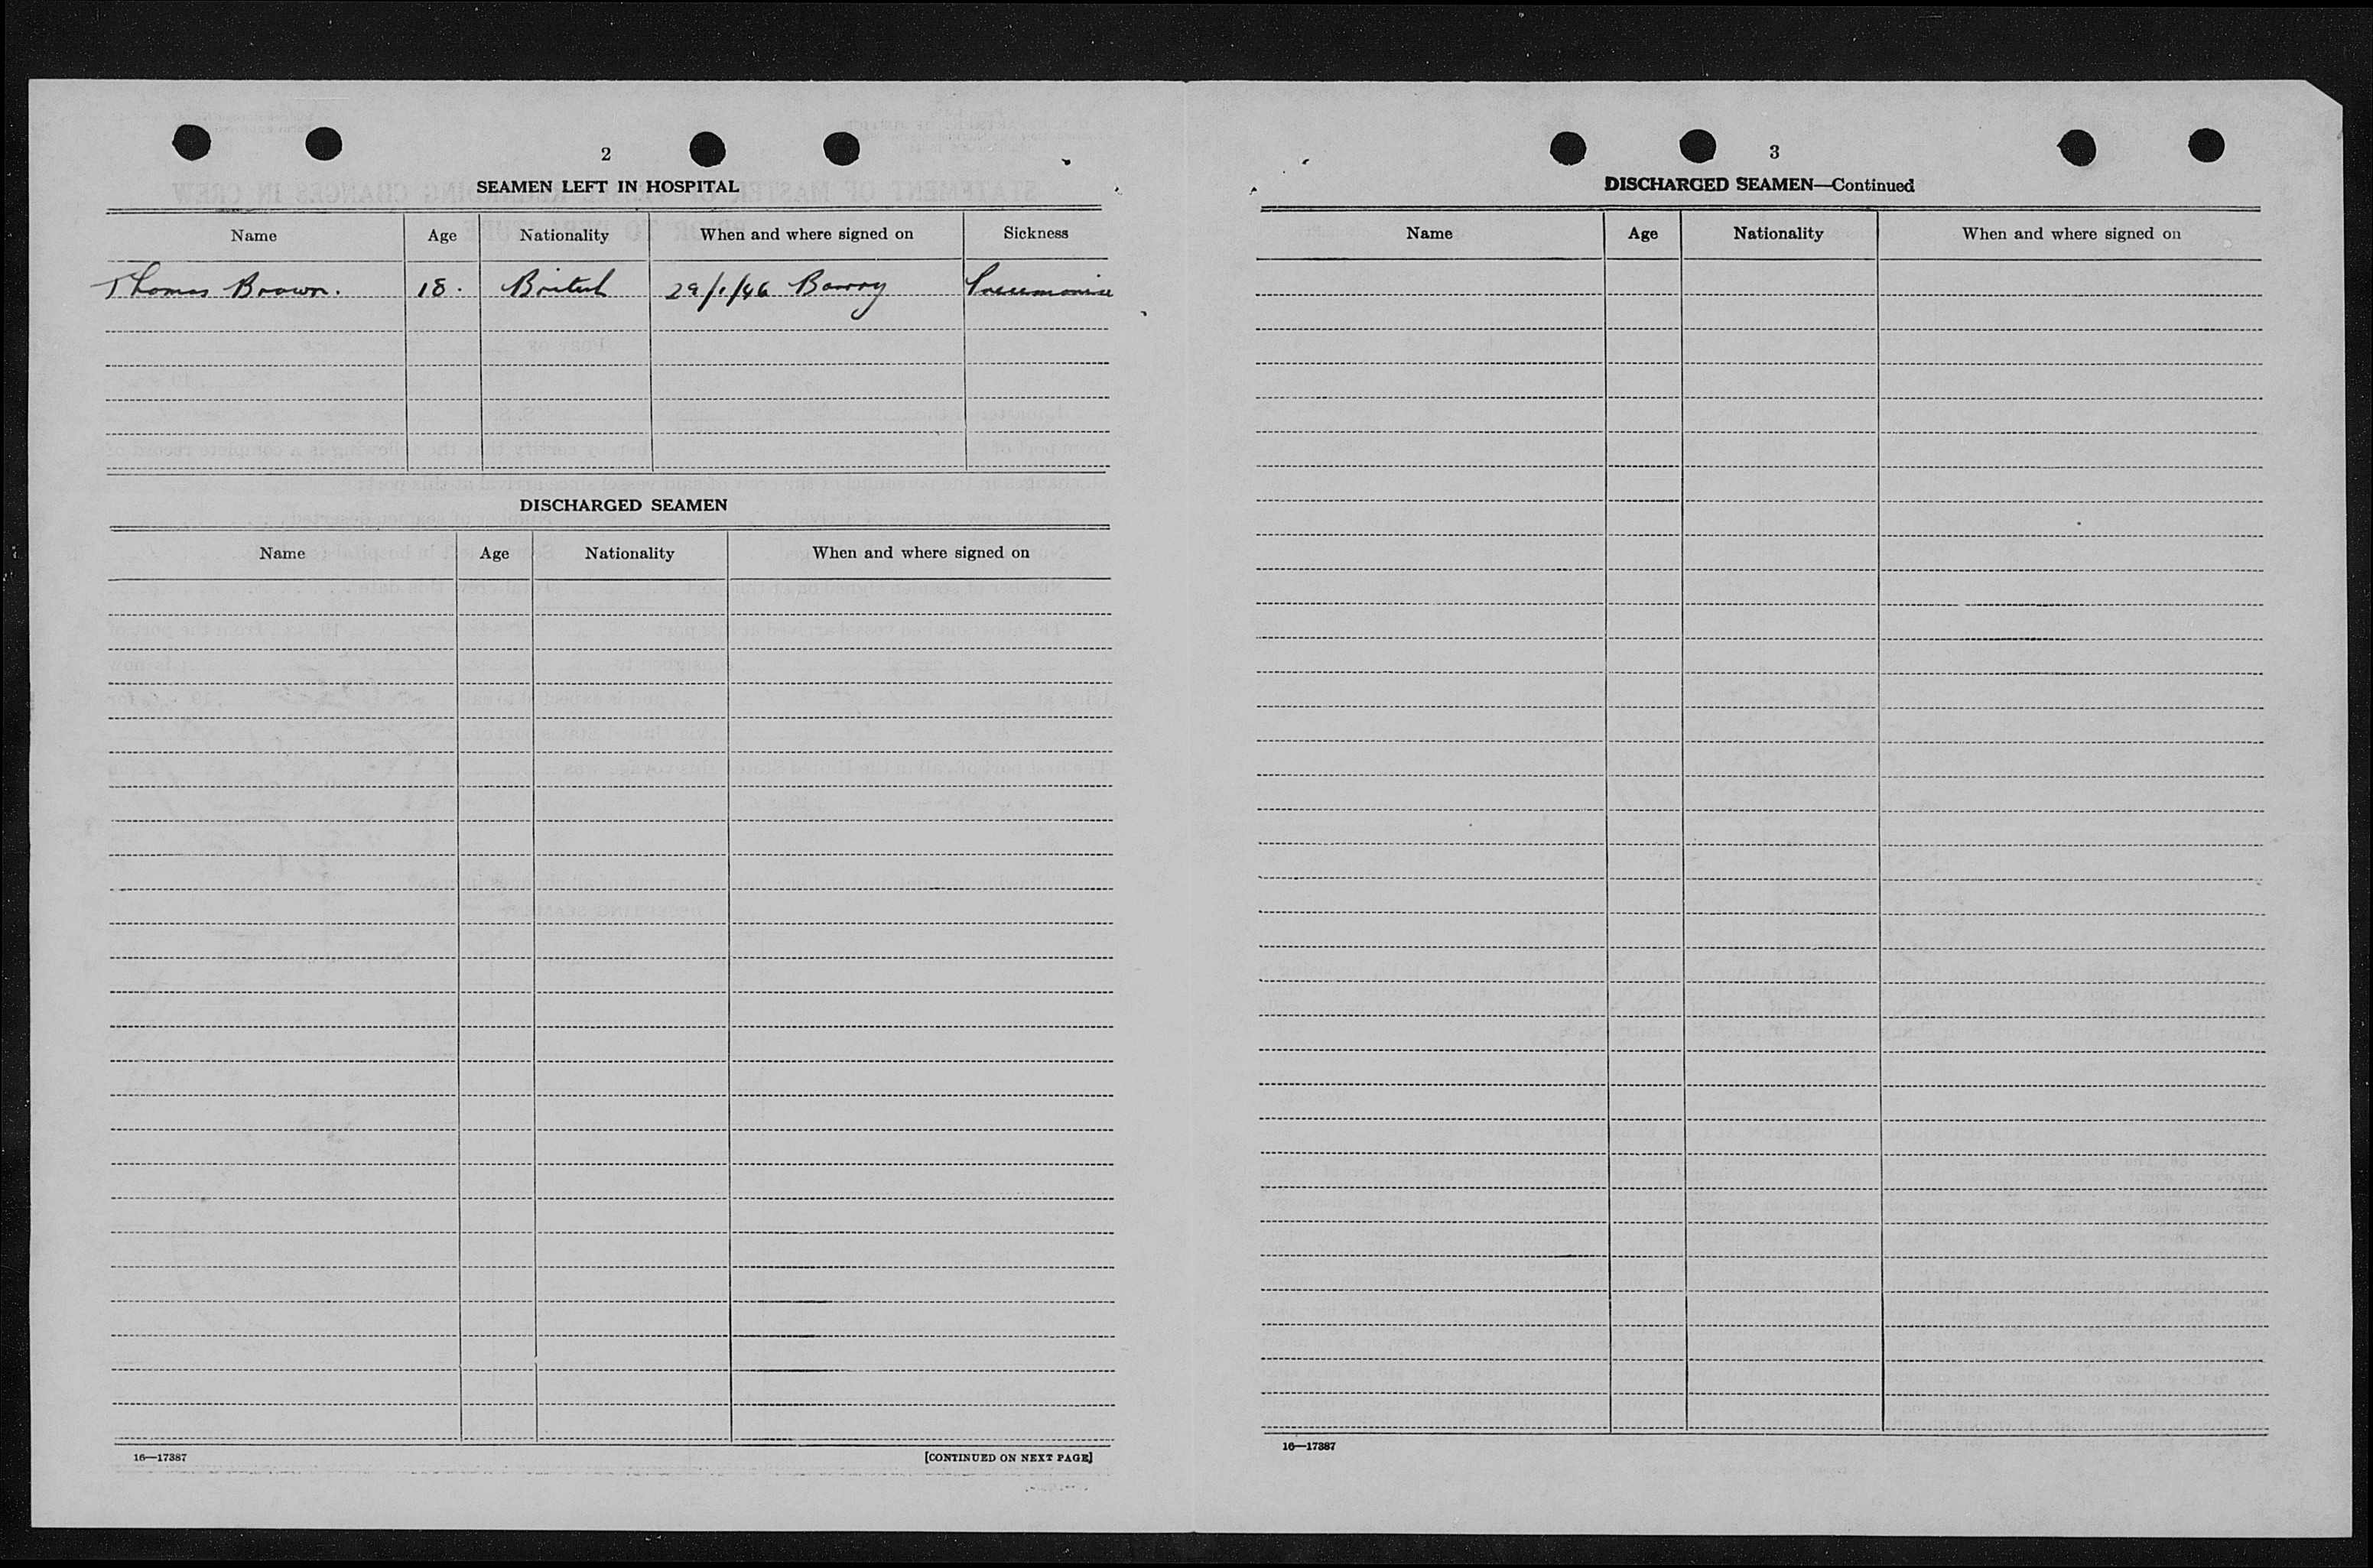 2
SEAMEN LEFT IN HOSPITAL
Name Age Nationality When and where signed on Sickness
Thomas Brown. 18. British 29/1/46 Barry Pneumonia
DISCHARGED SEAMEN
Name Age Nationality When and where signed on
16—17387 [CONTINUED ON NEXT PAGE]
3
DISCHARGED SEAMEN—Continued
Name Age Nationality When and where signed on
16—17387